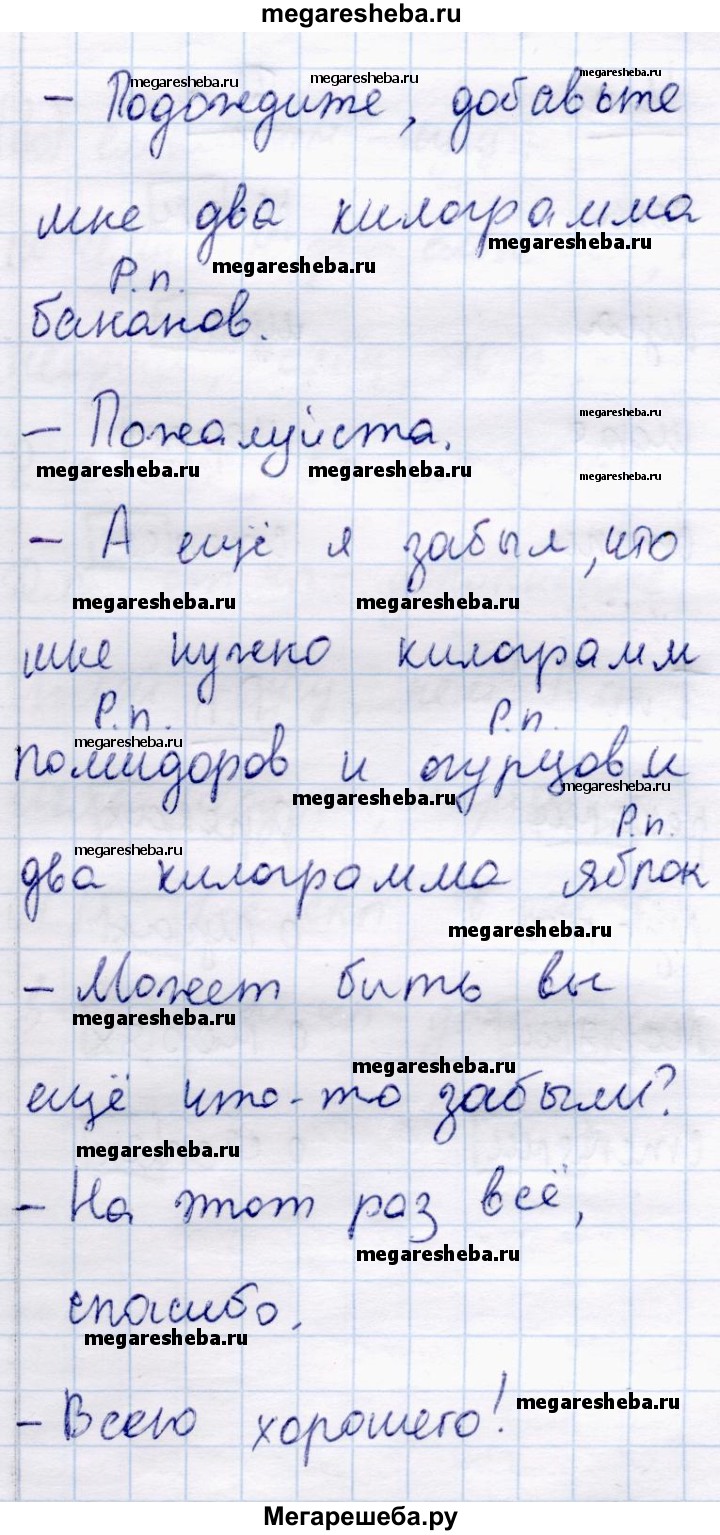 megaresheba.ru
megaresheba.ru megaresheba.ru megaresheba.ru
– Подождите, добавьте
мне два килограмма
megaresheba.ru megaresheba.ru
Р.п.
бананов.
– Пожалуйста. megaresheba.ru
megaresheba.ru megaresheba.ru megaresheba.ru
– А ещё я забыл, что
megaresheba.ru megaresheba.ru
мне нужно килограмм
Р.п. Р.п.
megaresheba.ru
помидоров и огурцов и
megaresheba.ru megaresheba.ru
Р.п.
megaresheba.ru
два килограмма яблок
megaresheba.ru
– Может бить вы
megaresheba.ru
megaresheba.ru
ещё что-то забыли?
megaresheba.ru
– На этот раз всё,
megaresheba.ru
спасибо.
megaresheba.ru
– Всего хорошего! megaresheba.ru
Мегарешеба.ру